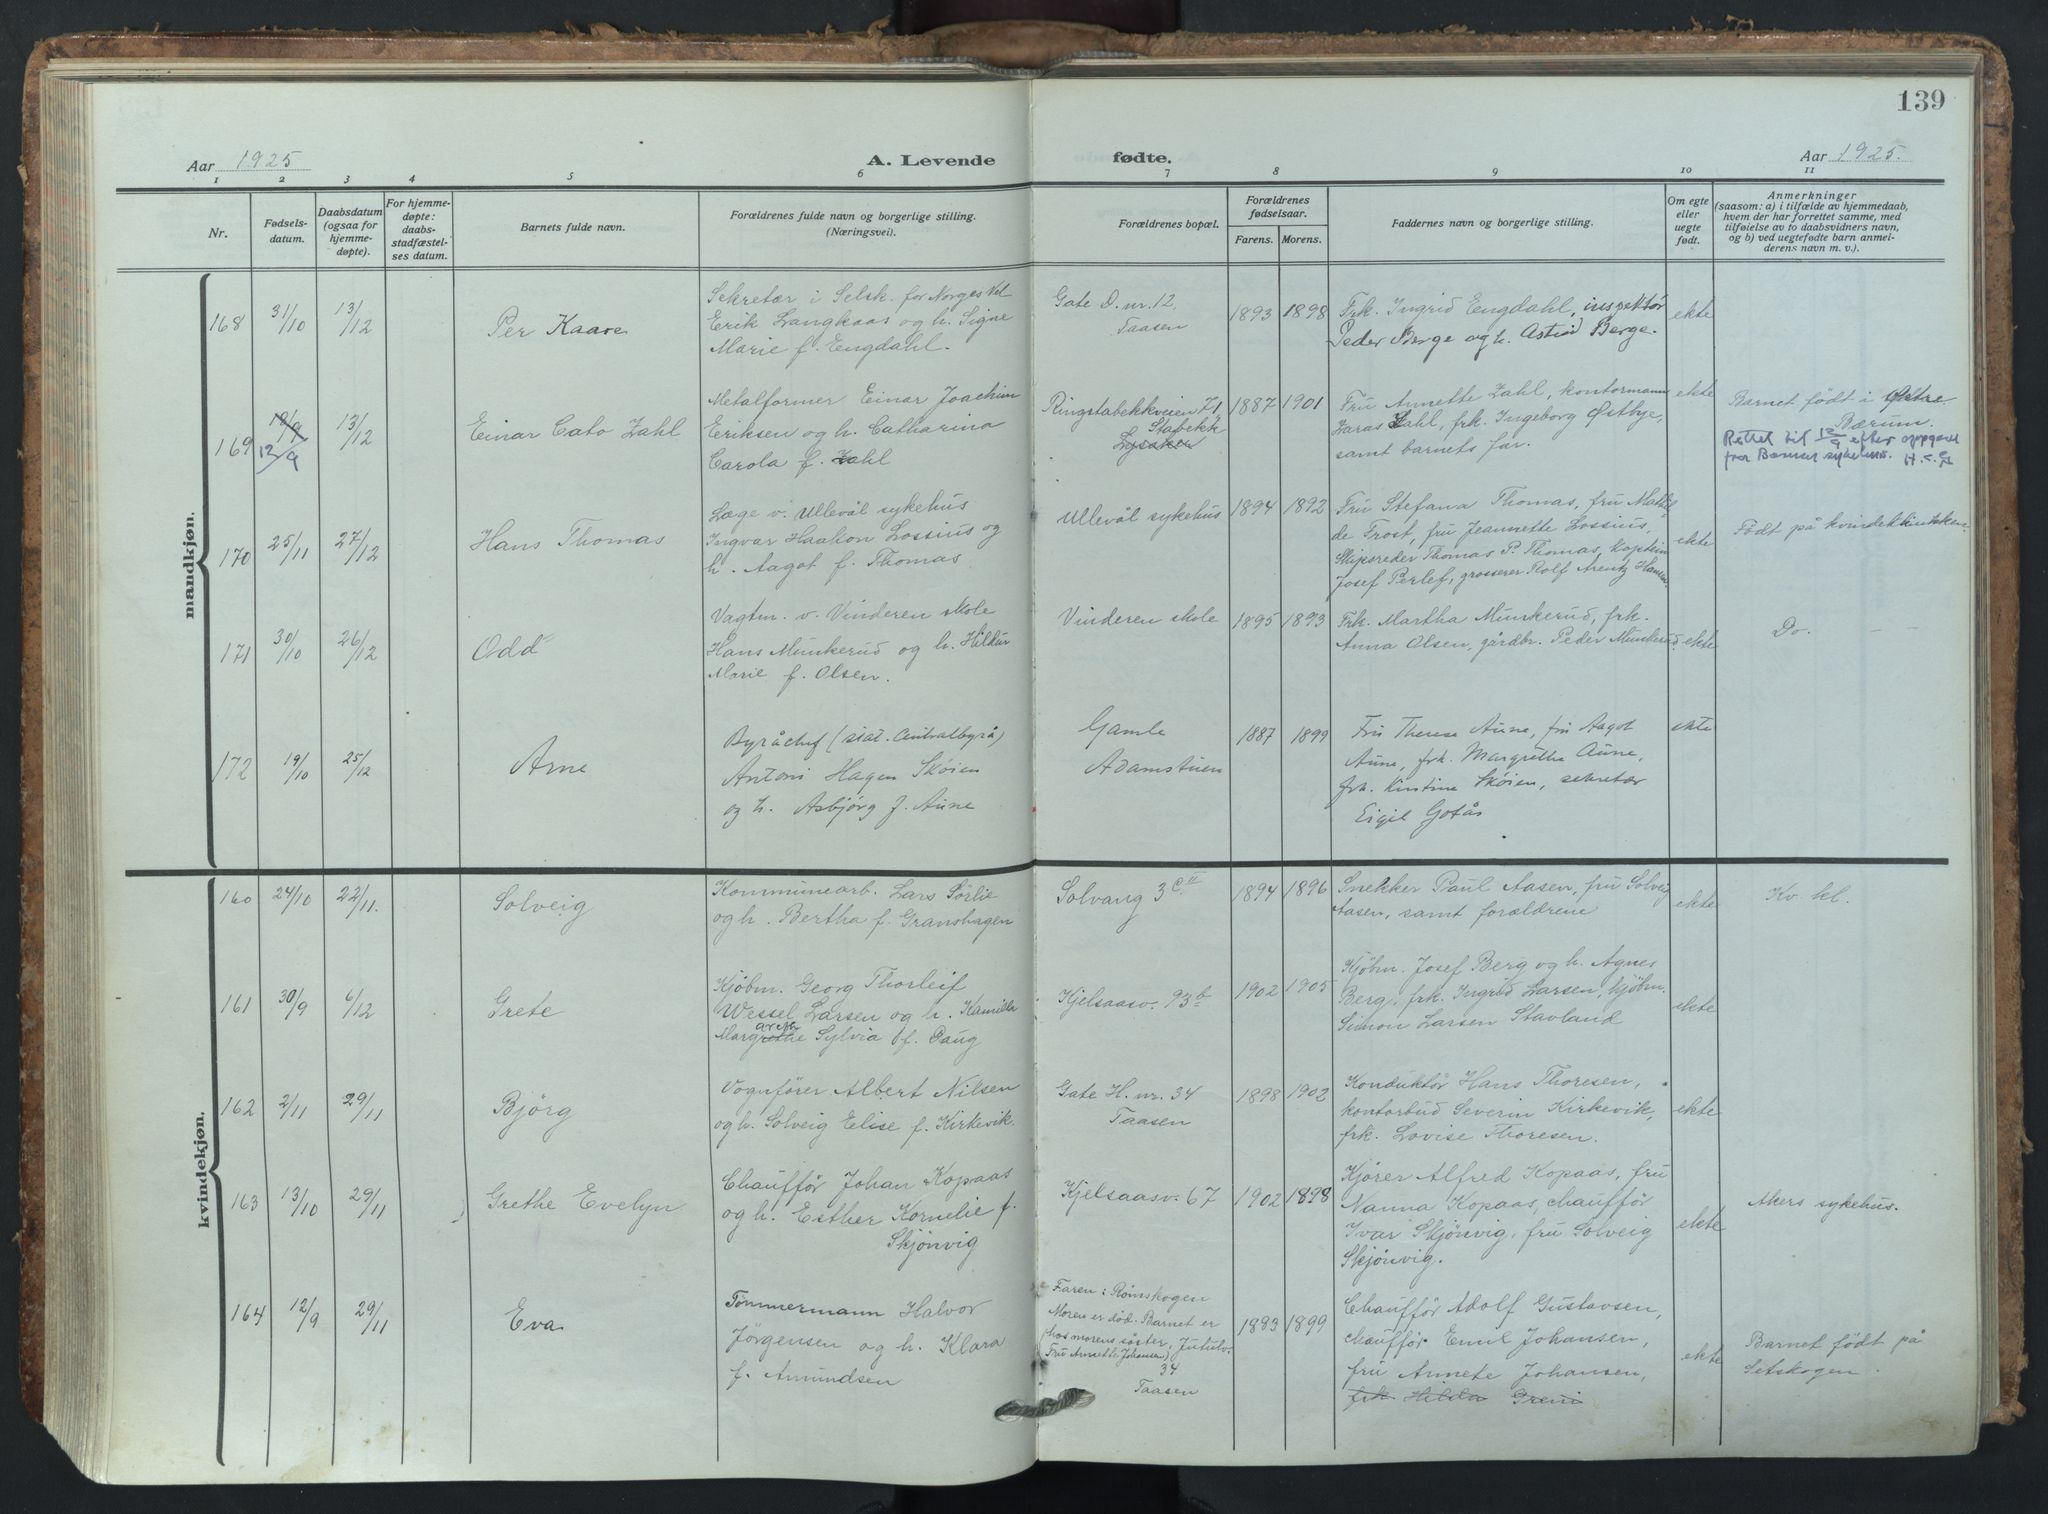 139
Aar 1925
A. Levende fødte.
Aar 1925.
1 2 3 4 5 6 7 8 9 10 11
Nr.
Fødsels-
datum.
Daabsdatum
(ogsaa for
hjemme-
døpte).
For hjemme-
døpte:
daabs-
stadfæstel-
ses datum.
Barnets fulde navn.
Forældrenes fulde navn og borgerlige stilling.
(Næringsvei).
Forældrenes bopæl.
Forældrenes
fødselsaar.
Farens. Morens.
Faddernes navn og borgerlige stilling.
Om egte
eller
uegte
født.
Anmerkninger
(saasom: a) i tilfælde av hjemmedaab,
hvem der har forrettet samme, med
tilføielse av to daabsvidners navn,
og b) ved uegtefødte barn anmel-
derens navn m. v.).
mandkjøn.
168 31/10 13/12
Per Kaare
Sekretær i Selsk. for Norges Vel
Erik Langkaas og h. Signe
Marie f. Engdahl.
Gate D. nr. 12,
Taasen
1893 1898
Frk. Ingrid Engdahl, inspektør
Peder Berge og h. Astrid Berge.
ekte
169 18/9 13/12
12/9
Einar Cato Zahl
Metalformer Einar Joachim
Eriksen og h. Catharina
Carola f. Zahl
Ringstabekkveien 71,
Stabekk
Lysaker
1887 1901
Fru Annette Zahl, kontormann
Zaras Zahl, frk. Ingeborg Østbye,
samt barnets far.
ekte
Barnet født i Østre
Bærum.
Rettet til 12/9 efter oppgave
fra Bærum sykehus.
170 25/11 27/12
Hans Thomas
Læge v. Ullevål sykehus
Ingvar Haakon Lossius og
h. Aagot f. Thomas
Ullevål sykehus
1894 1892
Fru Stefana Thomas, fru Mathil
de Frost, fru Jeannette Lossius,
Skipsreder Thomas P. Thomas, Kaptein
Josef Perlef, grosserer Rolf Arentz Hansen
ekte
Født på kvindeklinikken.
171 30/10 26/12
Odd
Vagtm. v. Vinderen skole
Hans Munkerud og h. Hildur
Marie f. Olsen.
Vinderen skole
1895 1893
Frk. Martha Munkerud, frk.
Anna Olsen, gårdbr. Peder Munkerud.
ekte
Do. — —
172 19/10 25/12
Arne
Byråchef (stat. Centralbyrå)
Antoni Hagen Skøien
og h. Asbjørg f. Aune
Gamle
Adamstuen
1887 1899
Fru Therese Aune, fru Aagot
Aune, frk. Margrethe Aune,
frk. Kirstine Skøien, sekretær
Eigil Gotås
ekte
kvindekjøn.
160 24/10 22/11.
Solveig
Kommunearb. Lars Sørlie
og h. Bertha f. Granshagen
Solvang 3 c II
1894 1896
Snekker Paul Aasen, fru Solveig
Aasen, samt forældrene
ekte
Kv. kl.
161 30/9 6/12
Grete
Kjøbm. Georg Thorleif
Wessel Larsen og h. Kamilla
Margrethe Sylvia f. Gaug
Kjelsaasv. 93 b
1902 1905
Kjøbm. Josef Berg og h. Agnes
Berg, frk. Ingrid Larsen, kjøbm.
Simon Larsen Stavland
ekte
162 2/11 29/11
Bjørg
Vognfører Albert Nilsen
og h. Solveig Elise f. Kirkevik.
Gate H. nr. 34
Taasen
1898 1902
Konduktør Hans Thoresen,
kontorbud Severin Kirkevik,
frk. Lovise Thoresen.
ekte
163 13/10 29/11
Grethe Evelyn
Chauffør Johan Kopaas
og h. Esther Kornelie f.
Skjønvig
Kjelsaasv. 67
1902 1898
Kjører Alfred Kopaas, fru
Nanna Kopaas, chauffør
Ivar Skjønvig, fru Solveig
Skjønvig.
ekte
Akers sykehus.
164 12/9 29/11
Eva
Tømmermann Halvor
Jørgensen og h. Klara
f. Amundsen
Faren i Rømskogen
Moren er død. Barnet er
hos morens søster,
Fru Annette Johansen), Jutulv.
34
Taasen
1883 1899
Chauffør Adolf Gustavsen,
chauffør Emil Johansen,
fru Annete Johansen,
frk. Hilda Greni
ekte
Barnet født på
Setskogen.